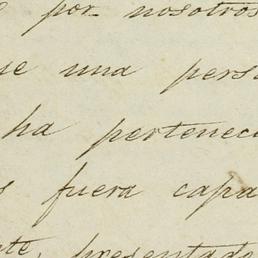 por nosotros
una pers
ha pertenec
fuera capa
presentado